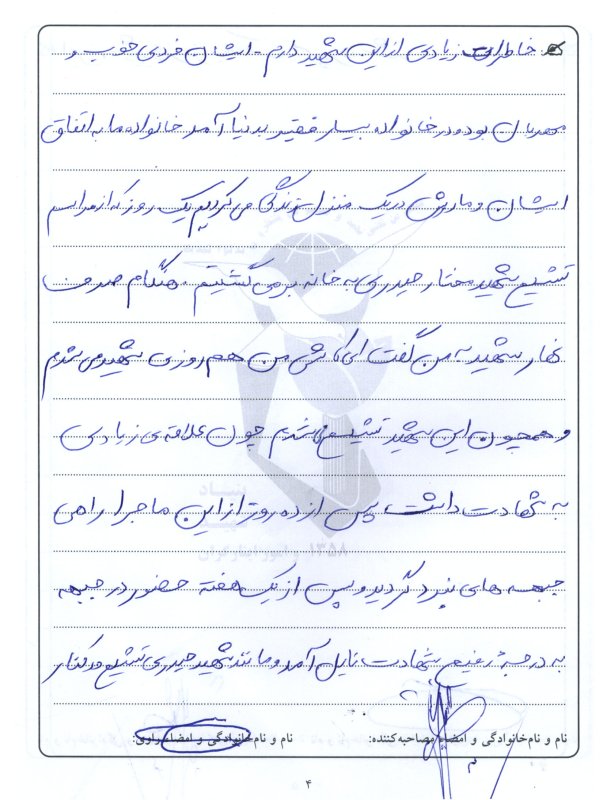 خاطرات زیادی از این شهید دارم - ایشان فردی خوب و
مهربان بود و در خانواده بسیار فقیر بدنیا آمد خانواده ما به اتفاق
ایشان و مادرش در یک منزل زندگی می کردیم یک روز که از مراسم
تشییع شهید مختار حیدری به خانه بر می گشتیم . هنگام صرف
نهار شهید به من گفت ای کاش من هم روزی شهید می شدم
و همچون این شهید تشییع می شدم چون علاقه ی زیادی
به شهادت داشت پس از ده روز از این ماجرا راهی
جبهه های نبرد گردید و پس از یک هفته حضور در جبهه
به درجه رفیع شهادت نایل آمد و مانند شهید حیدری تشییع و در کنار
بنیاد
۱۳۵۸
و امور ایثارگران
نام و نام خانوادگی و امضاء مصاحبه کننده:
نام و نام خانوادگی و امضاء راوی:
۴